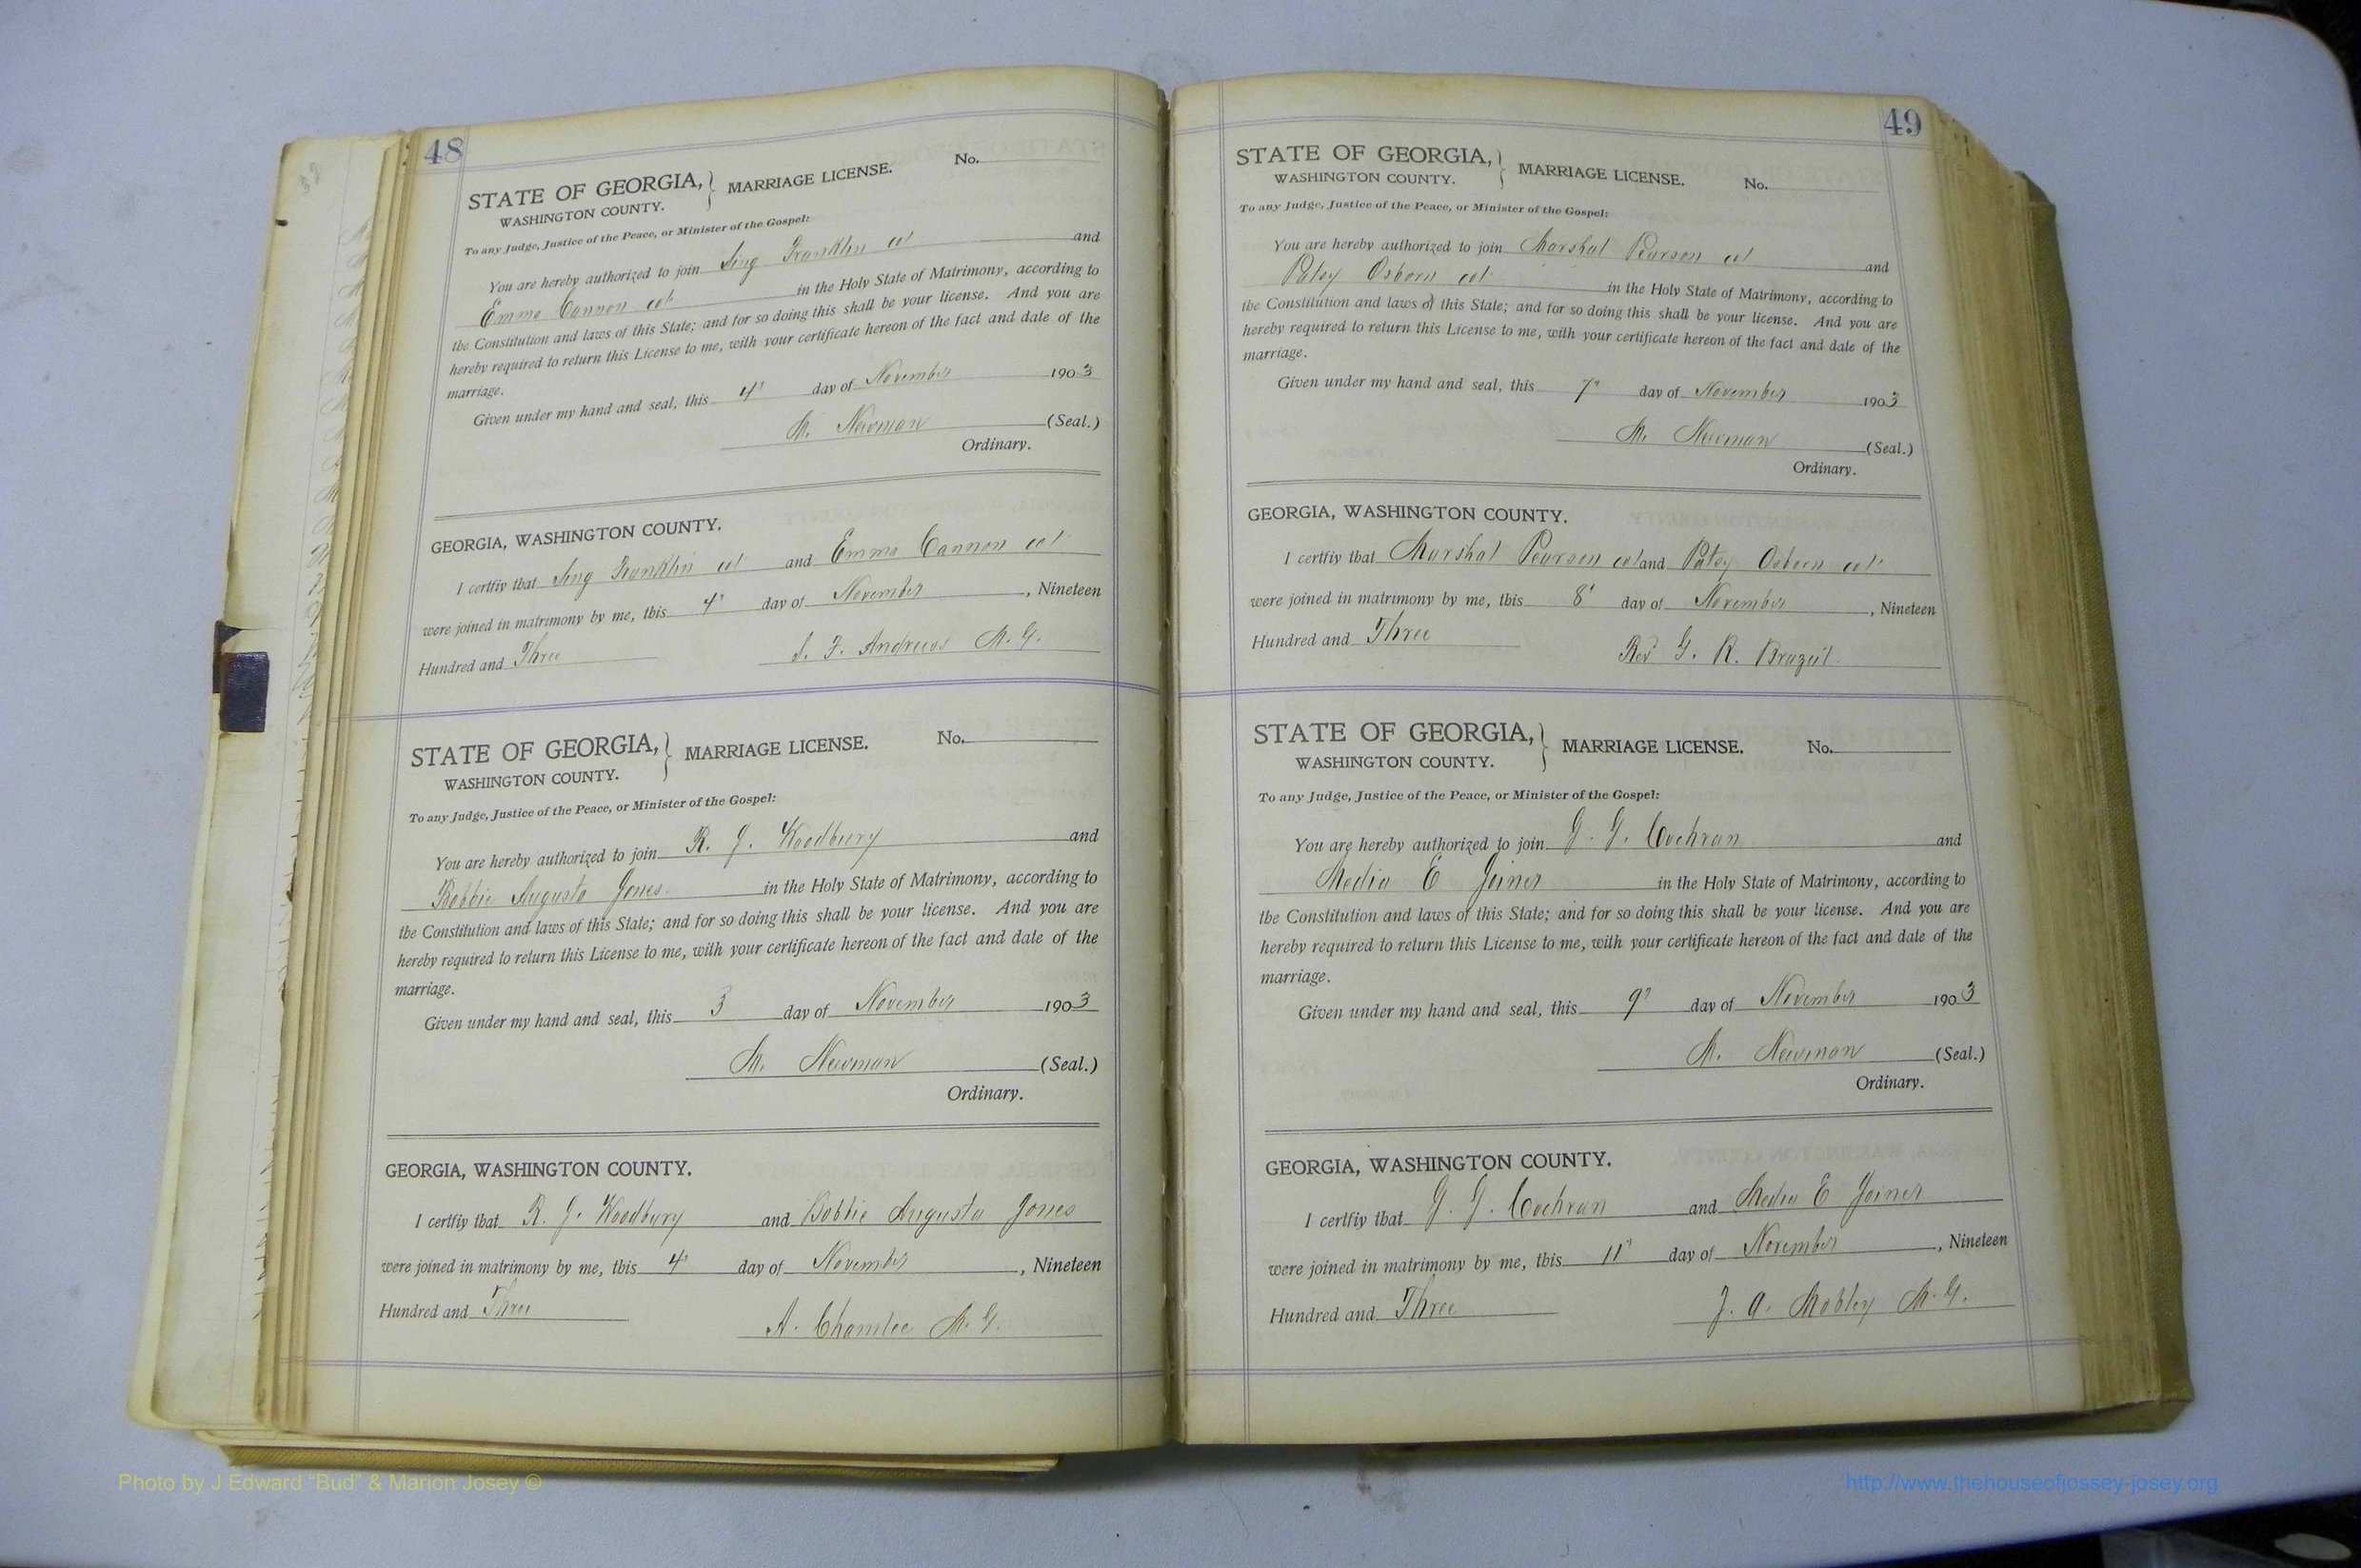 48
STATE OF GEORGIA, } MARRIAGE LICENSE. No.
WASHINGTON COUNTY.
To any Judge, Justice of the Peace, or Minister of the Gospel:
You are hereby authorized to join Sing Franklin col and
Emma Cannon col in the Holy State of Matrimony, according to
the Constitution and laws of this State; and for so doing this shall be your license. And you are
hereby required to return this License to me, with your certificate hereon of the fact and date of the
marriage.
Given under my hand and seal, this 4" day of November 1903
M. Newman (Seal.)
Ordinary.
GEORGIA, WASHINGTON COUNTY.
I certfiy that Sing Franklin col and Emma Cannon col
were joined in matrimony by me, this 4" day of November, Nineteen
Hundred and Three S. F. Andrews M. G.
STATE OF GEORGIA, } MARRIAGE LICENSE. No.
WASHINGTON COUNTY.
To any Judge, Justice of the Peace, or Minister of the Gospel:
You are hereby authorized to join R. J. Woodbury and
Bobbie Augusta Jones in the Holy State of Matrimony, according to
the Constitution and laws of this State; and for so doing this shall be your license. And you are
hereby required to return this License to me, with your certificate hereon of the fact and date of the
marriage.
Given under my hand and seal, this 3 day of November 1903
M. Newman (Seal.)
Ordinary.
GEORGIA, WASHINGTON COUNTY.
I certfiy that R. J. Woodbury and Bobbie Augusta Jones
were joined in matrimony by me, this 4" day of November, Nineteen
Hundred and Three A. Chamlee M. G.
49
STATE OF GEORGIA, } MARRIAGE LICENSE. No.
WASHINGTON COUNTY.
To any Judge, Justice of the Peace, or Minister of the Gospel:
You are hereby authorized to join Marshal Pearson col and
Patsy Osborn col in the Holy State of Matrimony, according to
the Constitution and laws of this State; and for so doing this shall be your license. And you are
hereby required to return this License to me, with your certificate hereon of the fact and date of the
marriage.
Given under my hand and seal, this 7" day of November 1903
M. Newman (Seal.)
Ordinary.
GEORGIA, WASHINGTON COUNTY.
I certfiy that Marshal Pearson col and Patsy Osborn col
were joined in matrimony by me, this 8" day of November, Nineteen
Hundred and Three Rev G. R. Brazil
STATE OF GEORGIA, } MARRIAGE LICENSE. No.
WASHINGTON COUNTY.
To any Judge, Justice of the Peace, or Minister of the Gospel:
You are hereby authorized to join G. G. Cochran and
Media E Joiner in the Holy State of Matrimony, according to
the Constitution and laws of this State; and for so doing this shall be your license. And you are
hereby required to return this License to me, with your certificate hereon of the fact and date of the
marriage.
Given under my hand and seal, this 9" day of November 1903
M. Newman (Seal.)
Ordinary.
GEORGIA, WASHINGTON COUNTY.
I certfiy that G. G. Cochran and Media E Joiner
were joined in matrimony by me, this 11" day of November, Nineteen
Hundred and Three J. A. Mobley M. G.
Photo by J Edward "Bud" & Marion Josey ©
http://www.thehouseofjossey-josey.org